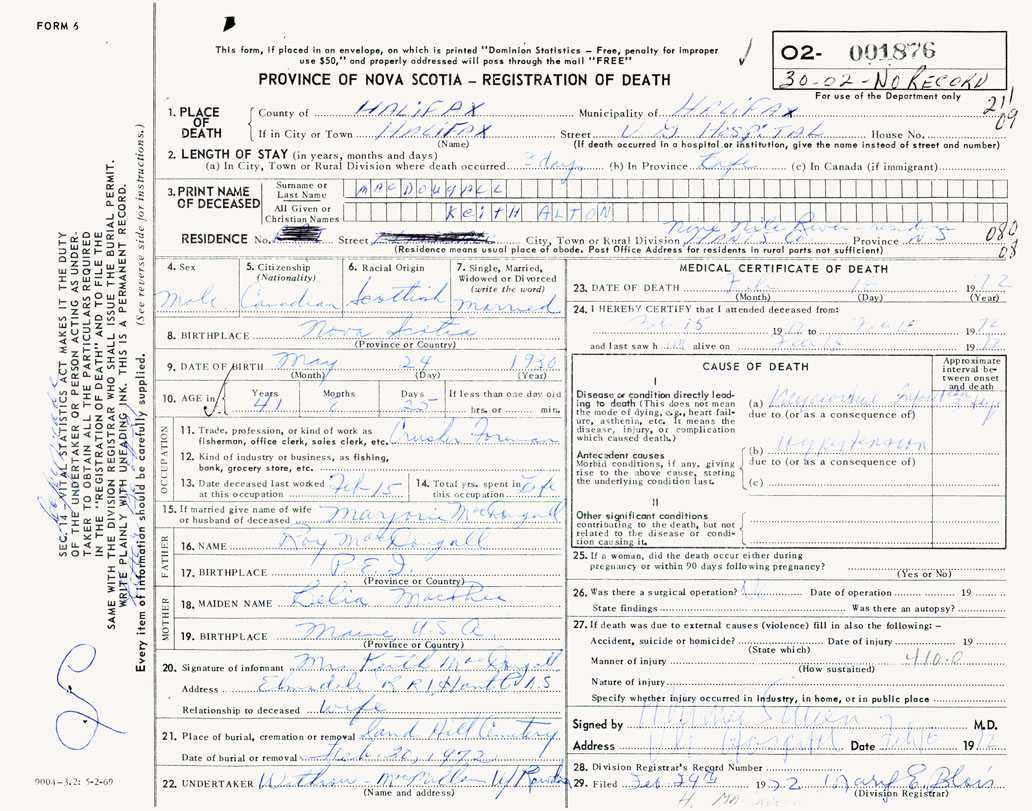 FORM 6
This form, if placed in an envelope, on which is printed "Dominion Statistics – Free, penalty for improper
use $50," and properly addressed will pass through the mail "FREE"
PROVINCE OF NOVA SCOTIA – REGISTRATION OF DEATH
02- 001876
30-02-NO RECORD
For use of the Department only
211
09
1. PLACE OF DEATH
County of HALIFAX Municipality of HALIFAX
If in City or Town HALIFAX Street V G HOSPITAL House No.
(Name) (If death occurred in a hospital or institution, give the name instead of street and number)
2. LENGTH OF STAY (in years, months and days)
(a) In City, Town or Rural Division where death occurred 3 days (b) In Province Life (c) In Canada (if immigrant)
3. PRINT NAME OF DECEASED
Surname or Last Name MACDOUGALL
All Given or Christian Names KEITH ALTON
Nine Mile River
RESIDENCE No. Street City, Town or Rural Division HANTS CO Province N S
080
08
(Residence means usual place of abode. Post Office Address for residents in rural parts not sufficient)
4. Sex Male
5. Citizenship (Nationality) Canadian
6. Racial Origin Scottish
7. Single, Married, Widowed or Divorced (write the word) Married
8. BIRTHPLACE Nova Scotia
(Province or Country)
9. DATE OF BIRTH May 24 1930
(Month) (Day) (Year)
10. AGE in Years 41 Months 8 Days 25 If less than one day old hrs. or min.
OCCUPATION
11. Trade, profession, or kind of work as fisherman, office clerk, sales clerk, etc. Crusher Foreman
12. Kind of industry or business, as fishing, bank, grocery store, etc.
13. Date deceased last worked at this occupation Feb-15
14. Total yrs. spent in this occupation Life
15. If married give name of wife or husband of deceased Marjorie MacDougall
FATHER
16. NAME Roy MacDougall
17. BIRTHPLACE P.E.I.
(Province or Country)
MOTHER
18. MAIDEN NAME Celia MacPhee
19. BIRTHPLACE Maine, U.S.A.
(Province or Country)
20. Signature of informant Mrs Keith MacDougall
Address Elmsdale R R 1, Hants Co N.S
Relationship to deceased wife
21. Place of burial, cremation or removal Sand Hill Cemetery
Date of burial or removal Feb. 20, 1972
22. UNDERTAKER
(Name and address)
MEDICAL CERTIFICATE OF DEATH
23. DATE OF DEATH Feb 18 1972
(Month) (Day) (Year)
24. I HEREBY CERTIFY that I attended deceased from:
Feb 15 1972 to Feb 18 1972
and last saw him alive on Feb 18 1972
CAUSE OF DEATH
Approximate interval between onset and death
I
Disease or condition directly leading to death (This does not mean the mode of dying, e.g., heart failure, asthenia, etc. It means the disease, injury, or complication which caused death.)
(a) Myocardial Infarction 3 days
due to (or as a consequence of)
Antecedent causes
Morbid conditions, if any, giving rise to the above cause, stating the underlying condition last.
(b) Hypertension
due to (or as a consequence of)
(c)
II
Other significant conditions contributing to the death, but not related to the disease or condition causing it.
25. If a woman, did the death occur either during
pregnancy or within 90 days following pregnancy?
(Yes or No)
26. Was there a surgical operation? No Date of operation 19
State findings Was there an autopsy?
27. If death was due to external causes (violence) fill in also the following: –
Accident, suicide or homicide? Date of injury 19
(State which)
Manner of injury 410.0
(How sustained)
Nature of injury
Specify whether injury occurred in Industry, in home, or in public place
Signed by M.D.
Address V G Hospital Date Feb 18 1972
28. Division Registrar's Record Number
29. Filed Feb 29th 1972 Mary E. Blois
(Division Registrar)
SEC. 14 – VITAL STATISTICS ACT MAKES IT THE DUTY
OF THE UNDERTAKER OR PERSON ACTING AS UNDERTAKER TO OBTAIN ALL THE PARTICULARS REQUIRED
IN THE "REGISTRATION OF DEATH" AND TO FILE THE
SAME WITH THE DIVISION REGISTRAR WHO SHALL ISSUE THE BURIAL PERMIT.
WRITE PLAINLY WITH UNFADING INK. THIS IS A PERMANENT RECORD.
Every item of information should be carefully supplied. (See reverse side for instructions.)
9004-3.2: 5-2-69